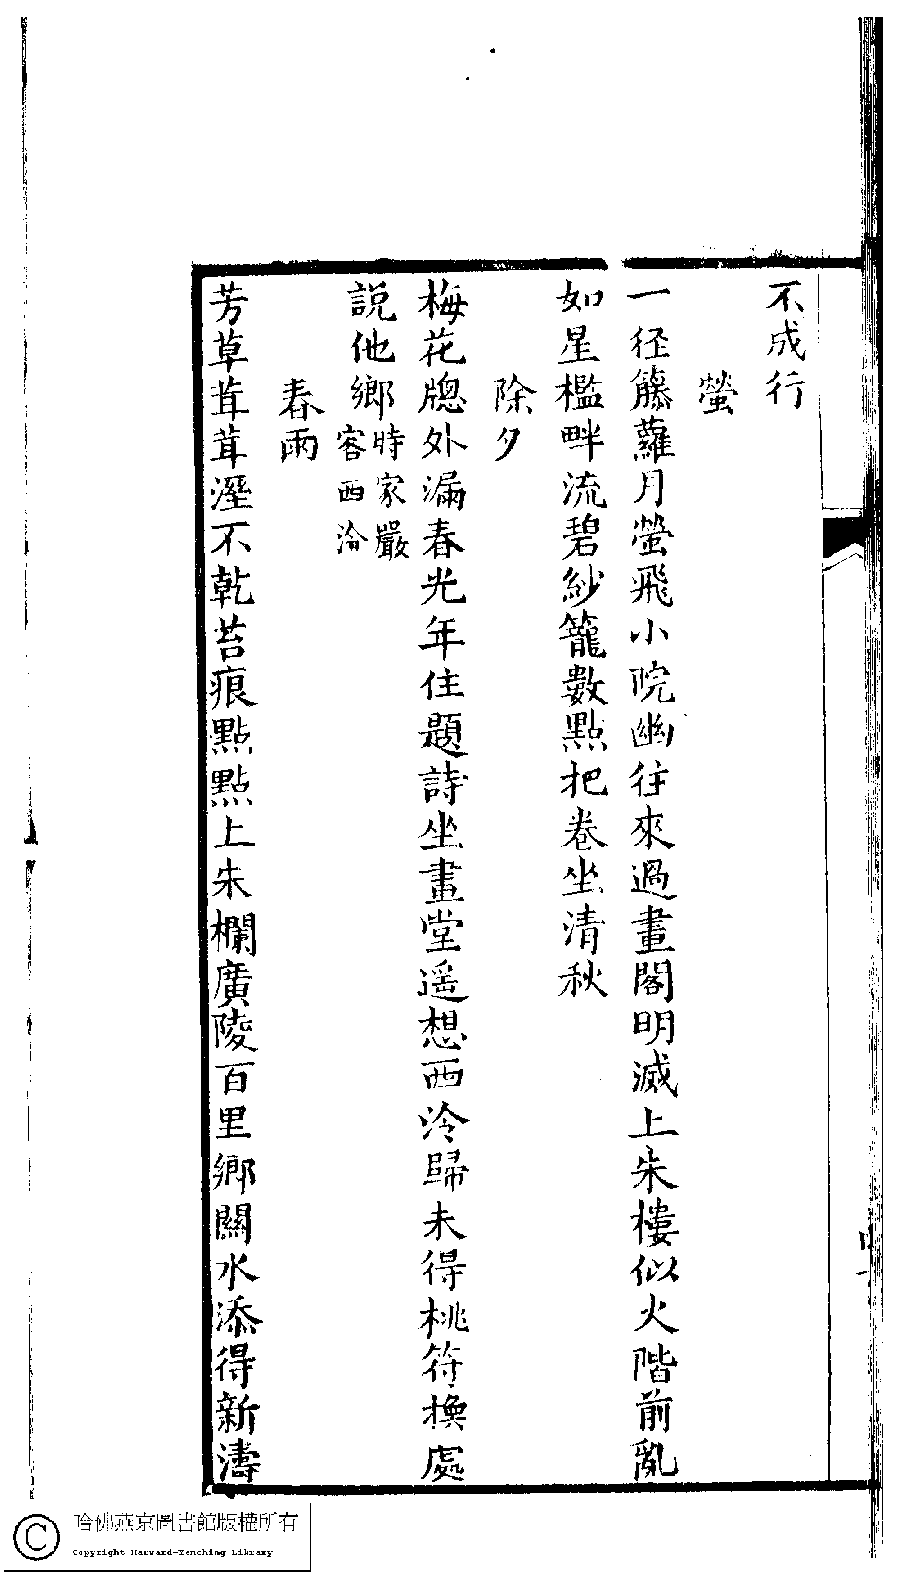 不成行
螢
一径籐蘿月螢飛小院幽往來過畫閣明滅上朱樓似火階前亂
如星檻畔流碧紗籠數點把卷坐清秋
除夕
梅花牕外漏春光年住題詩坐畫堂遥想西泠歸未得桃符換處
說他鄉時家嚴客西泠
春雨
芳草茸茸溼不乾苔痕點點上朱欄廣陵百里鄉關水添得新濤
哈佛燕京圖書館版權所有
Copyright Harvard-Yenching Library